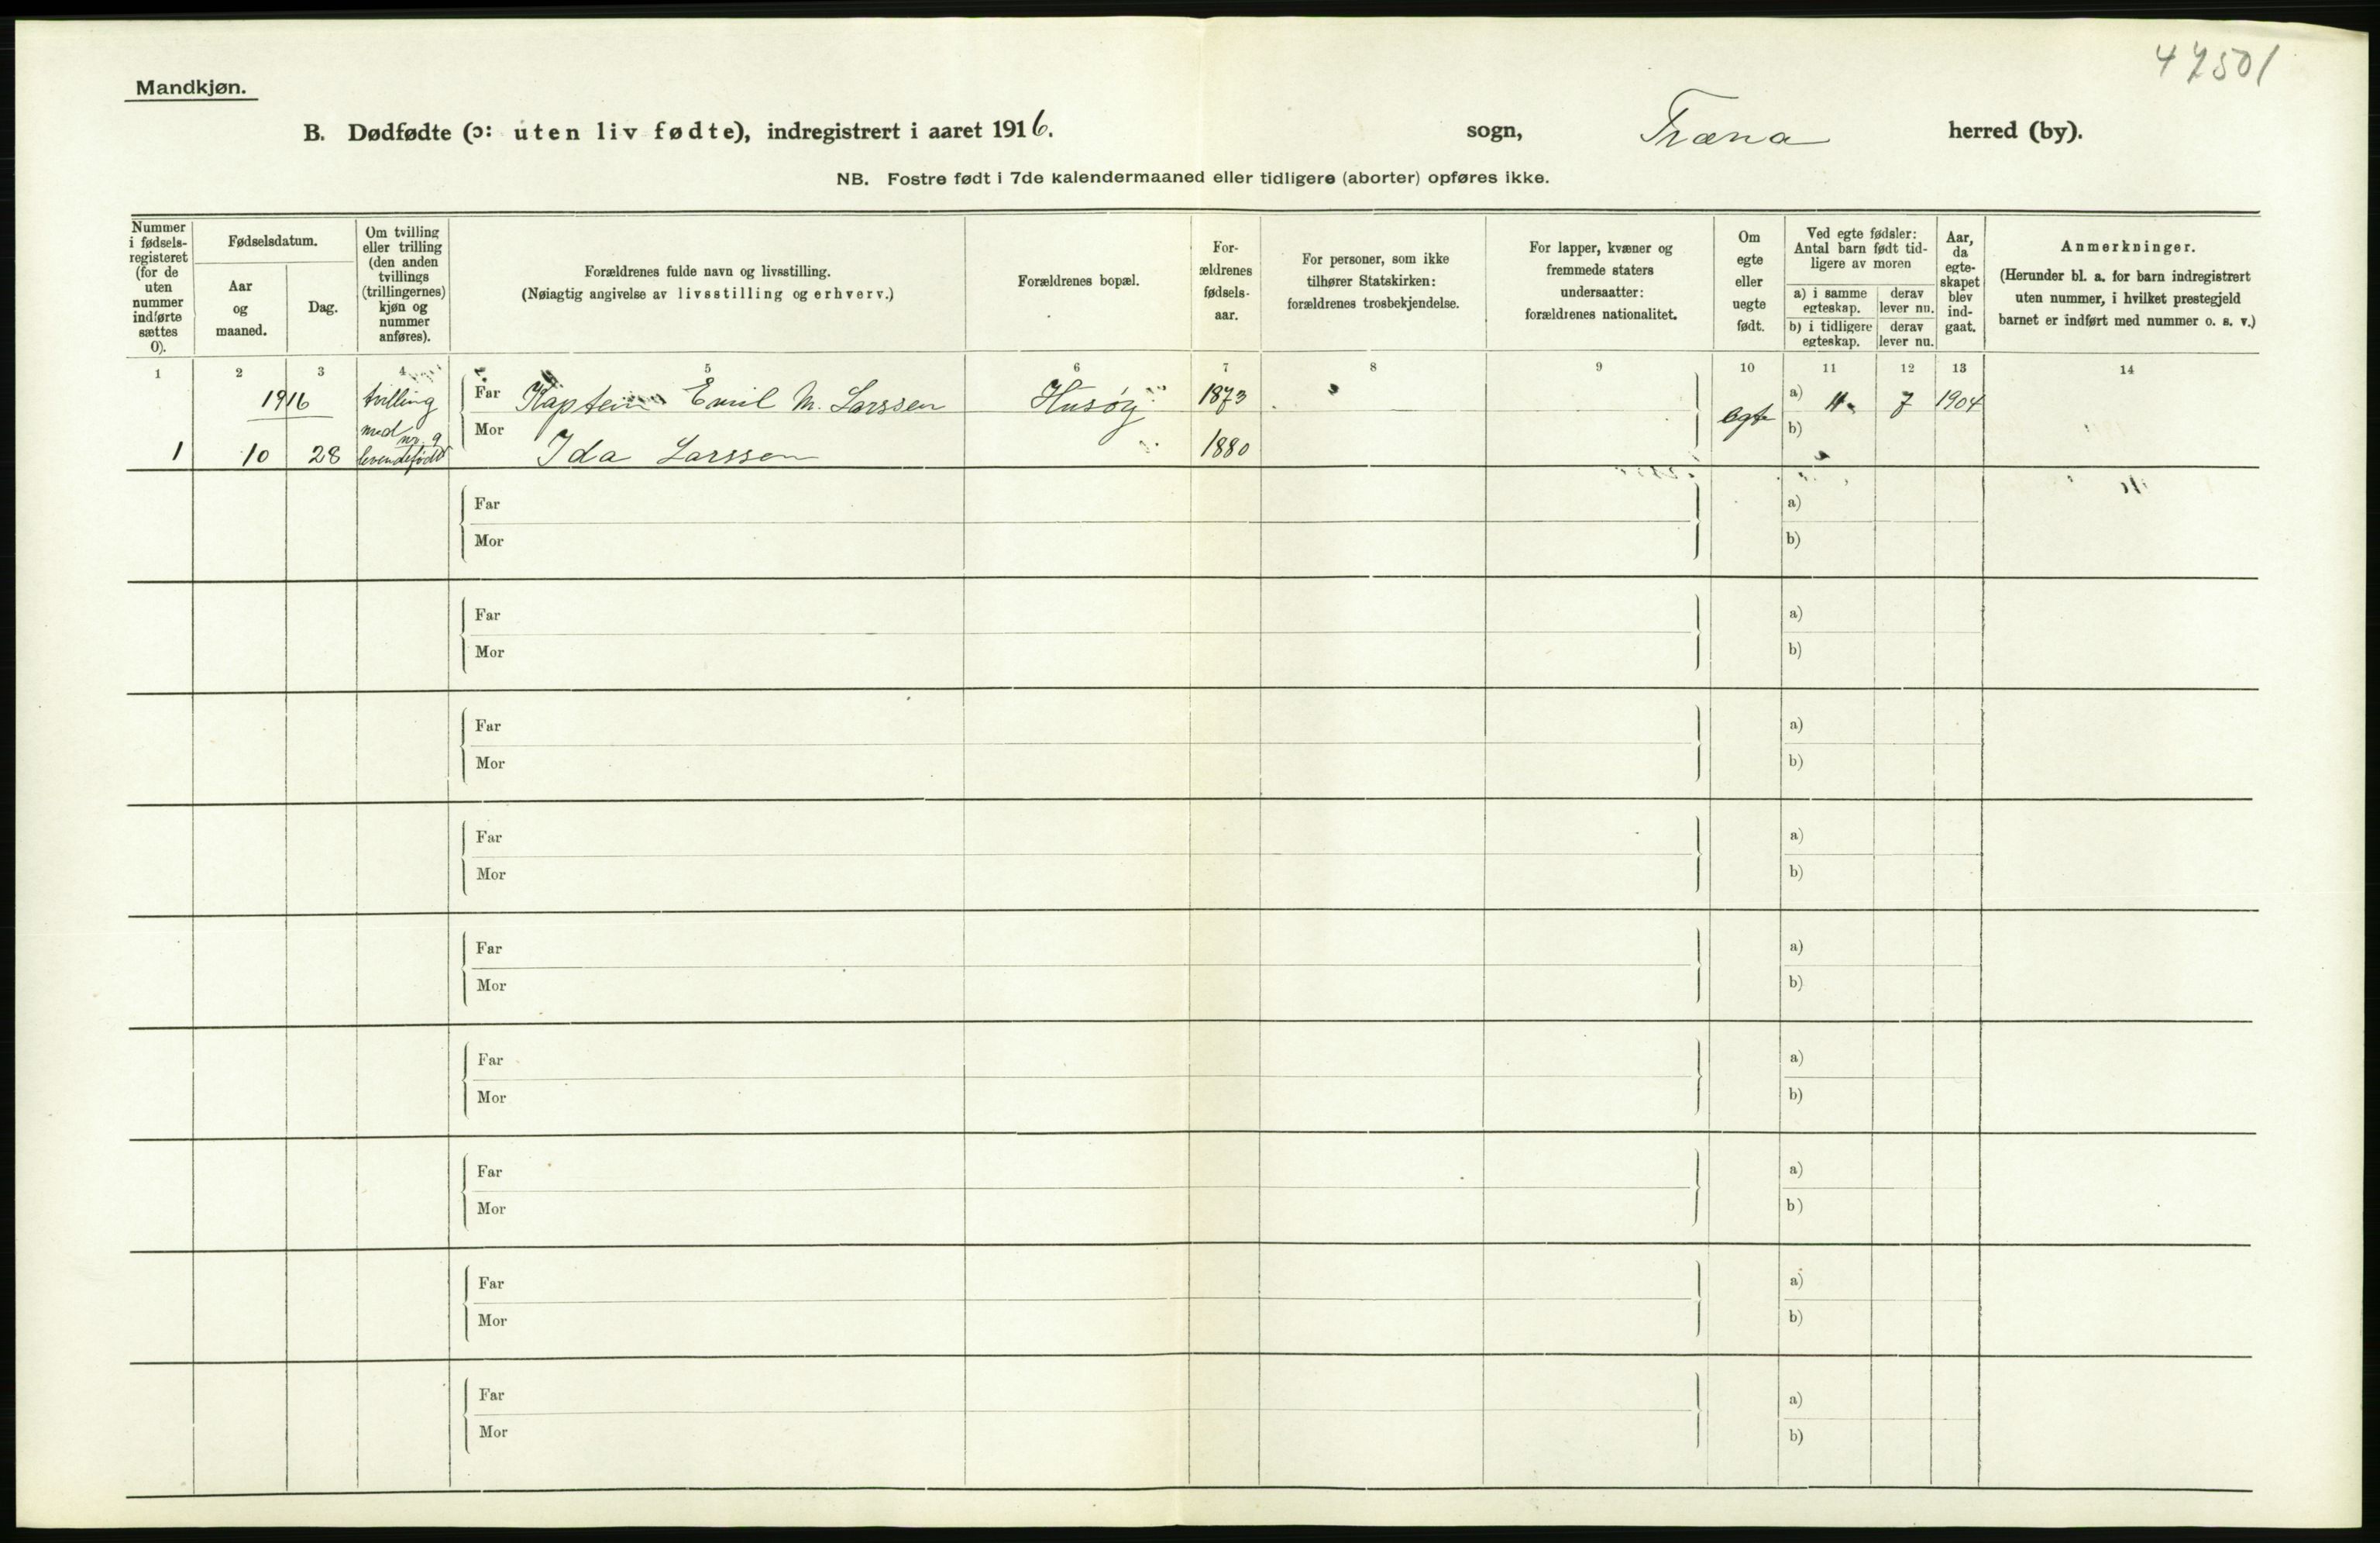 47501
Mandkjøn.
B. Dødfødte (ɔ: uten liv fødte), indregistrert i aaret 1916. sogn, Træna herred (by).
NB. Fostre født i 7de kalendermaaned eller tidligere (aborter) opføres ikke.
Nummer i fødsels-registeret (for de uten nummer indførte sættes 0).
Fødselsdatum.
Aar og maaned.
Dag.
Om tvilling eller trilling (den anden tvillings (trillingernes) kjøn og nummer anføres).
Forældrenes fulde navn og livsstilling.
(Nøiagtig angivelse av livsstilling og erhverv.)
Forældrenes bopæl.
For-ældrenes fødsels-aar.
For personer, som ikke tilhører Statskirken: forældrenes trosbekjendelse.
For lapper, kvæner og fremmede staters undersaatter: forældrenes nationalitet.
Om egte eller uegte født.
Ved egte fødsler: Antal barn født tid-ligere av moren
a) i samme egteskap.
derav lever nu.
b) i tidligere egteskap.
derav lever nu.
Aar, da egte-skapet blev ind-gaat.
Anmerkninger.
(Herunder bl. a. for barn indregistrert uten nummer, i hvilket prestegjeld barnet er indført med nummer o. s. v.)
1 2 3 4 5 6 7 8 9 10 11 12 13 14
1916 tvilling Far Kaptein Emil M. Larssen Husøy 1873 egte a) 7 1904
med nr. 9
1 10 28 levendefødt Mor Ida Larssen 1880 b)
Far a)
Mor b)
Far a)
Mor b)
Far a)
Mor b)
Far a)
Mor b)
Far a)
Mor b)
Far a)
Mor b)
Far a)
Mor b)
Far a)
Mor b)
Far a)
Mor b)